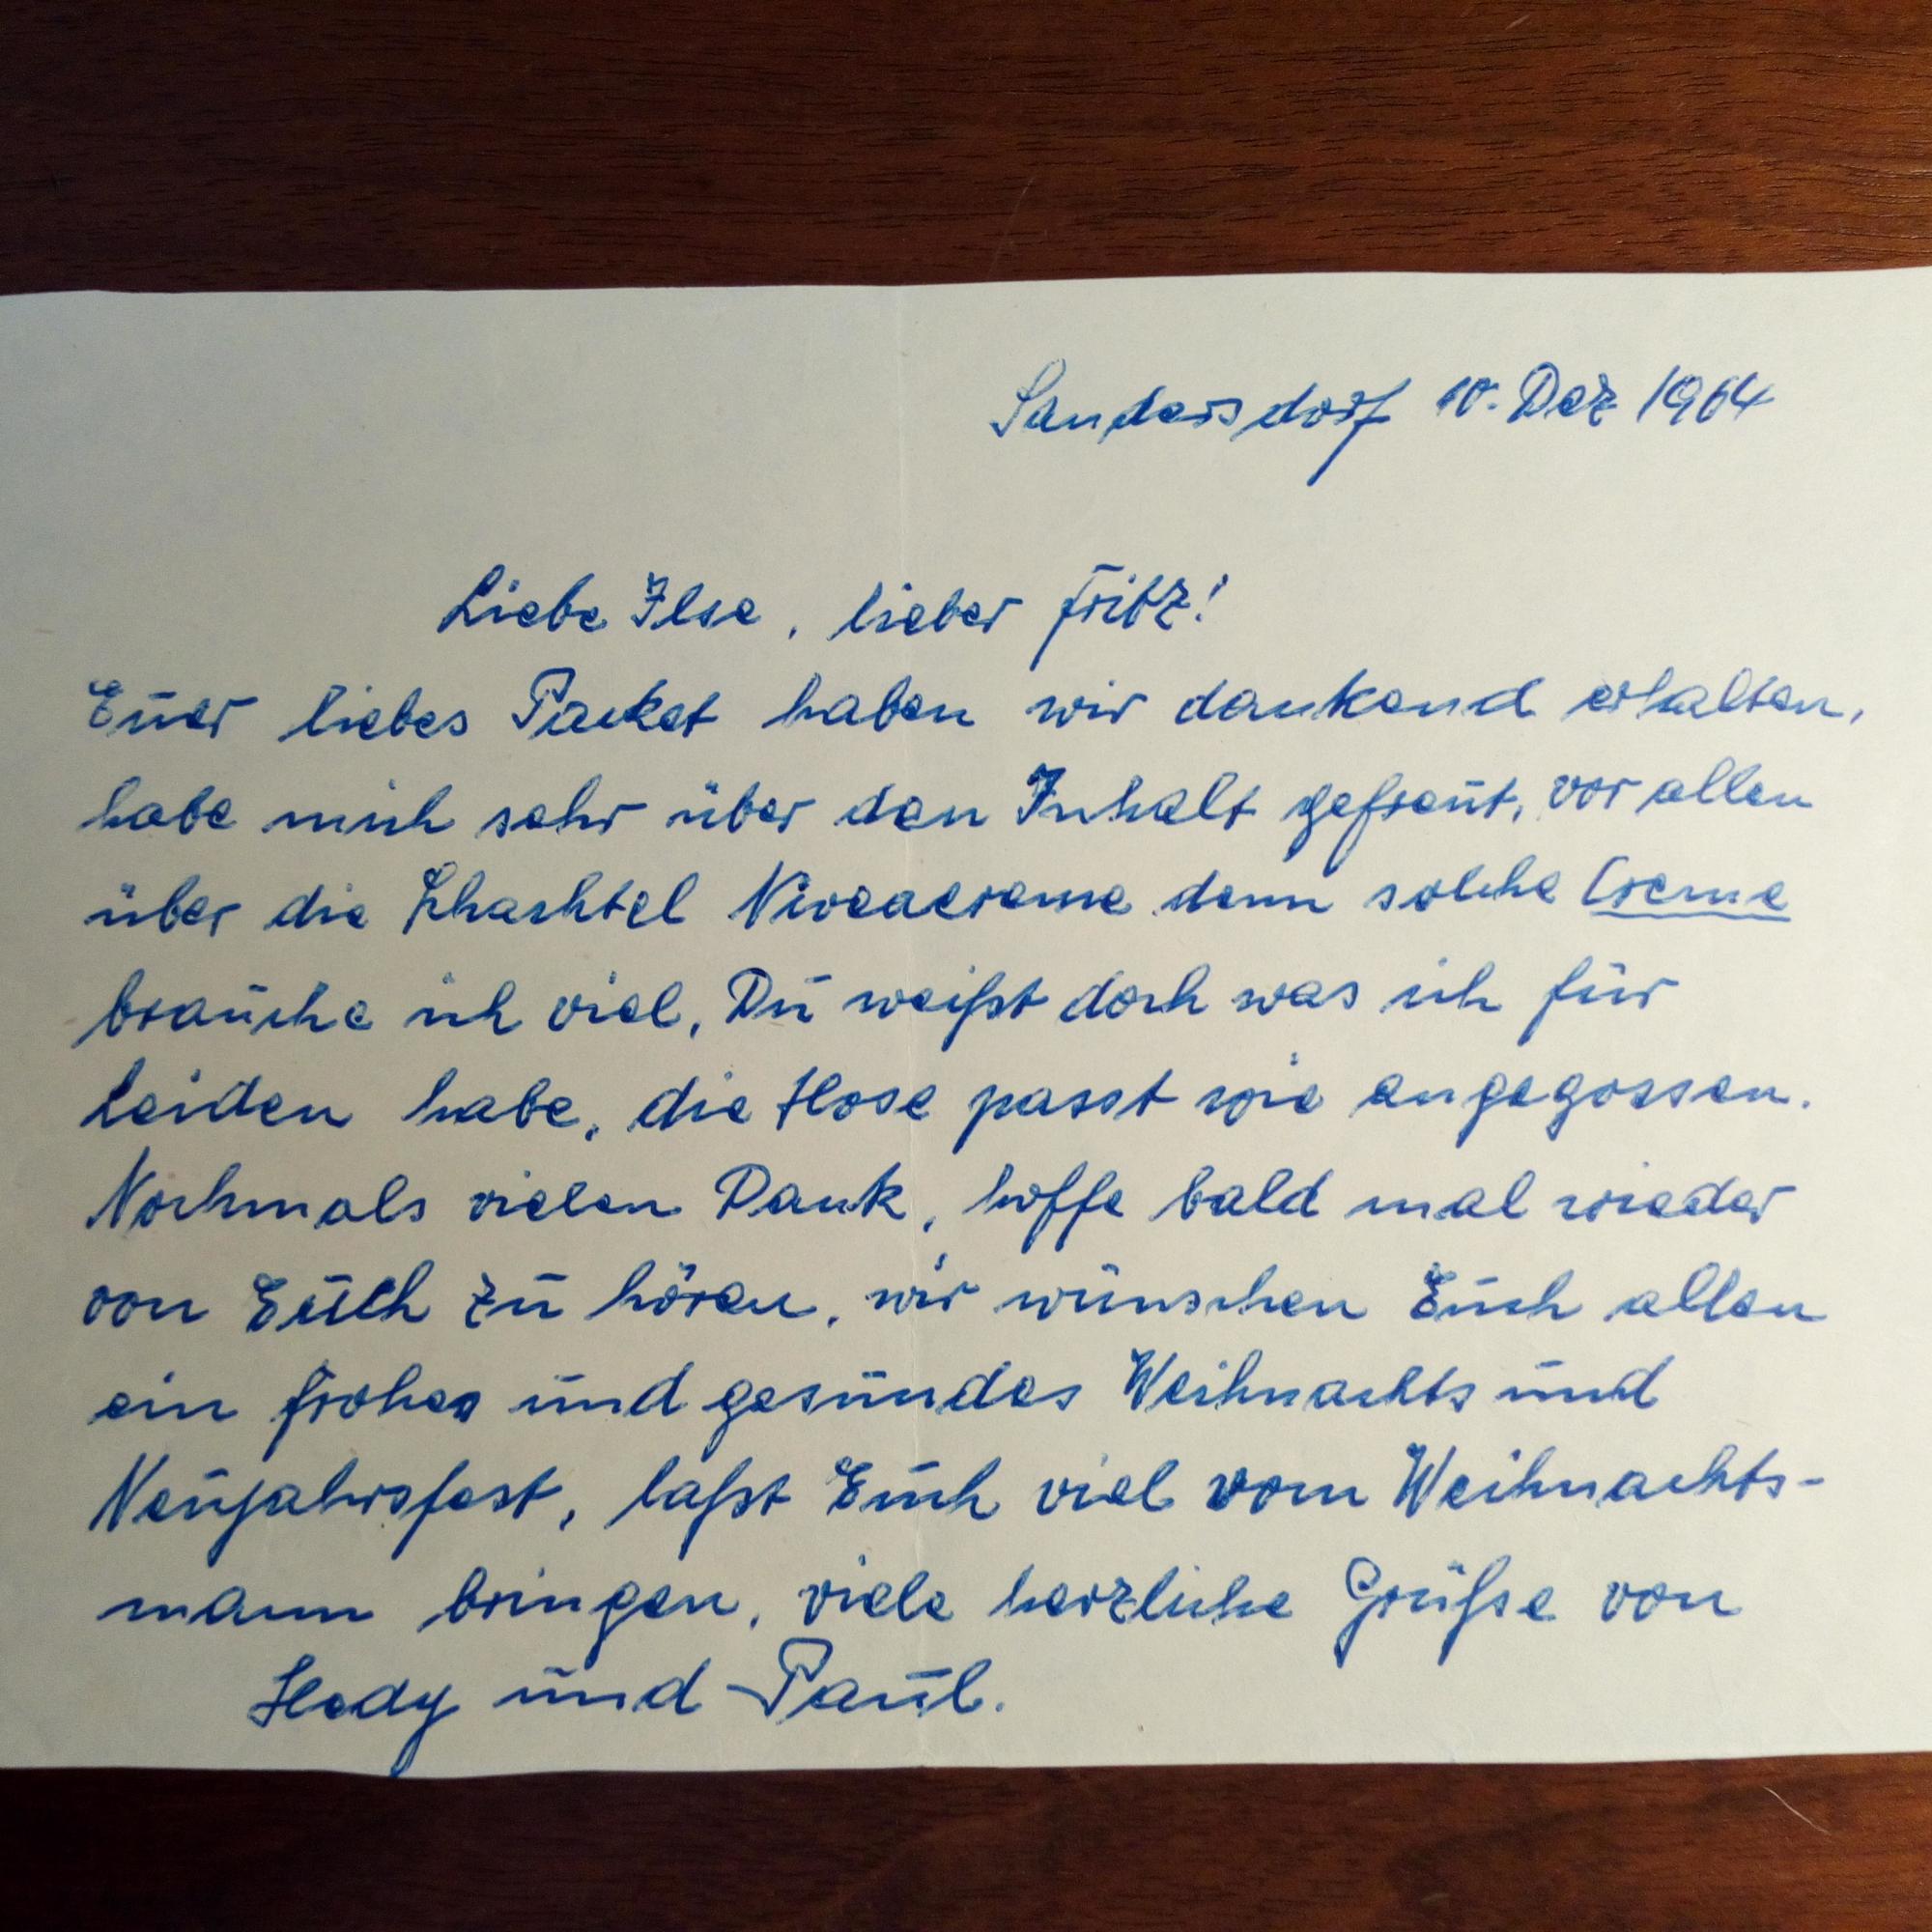 Sandersdorf 10. Dez 1964
Liebe Ilse, lieber Fritz!
Euer liebes Packet haben wir dankend erhalten,
habe mich sehr über den Inhalt gefreut, vor allen
über die Schachtel Niveacreme denn solche Creme
brauche ich viel, Du weißt doch was ich für
Leiden habe, die Hose passt wie angegossen.
Nochmals vielen Dank, hoffe bald mal wieder
von Euch zu hören, wir wünschen Euch allen
ein frohes und gesundes Weihnachts und
Neujahrsfest, laßt Euch viel vom Weihnachts-
mann bringen, viele herzliche Grüße von
Hedy und Paul.